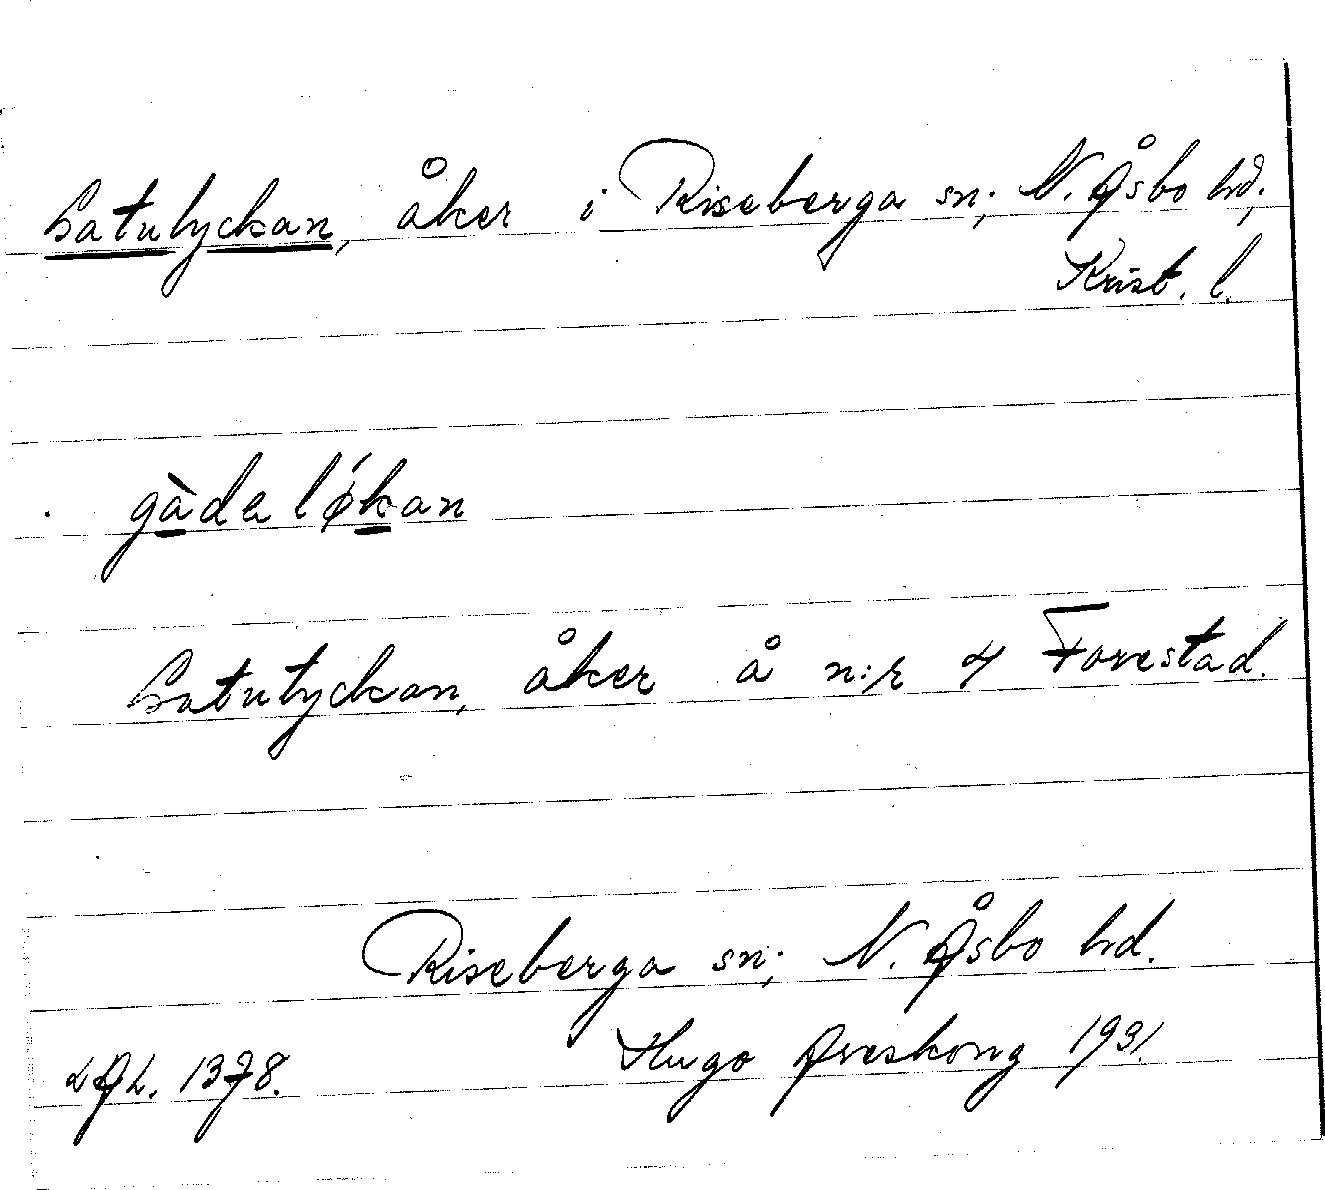 Gatulyckan, åker i Riseberga sn; N. Åsbo hd;
Krist. l.
gàdeløkan
Gatulyckan, åker å n:r 4 Forestad.
Riseberga sn; N. Åsbo hd.
Hugo Areskoug 1931.
LAL. 1378.